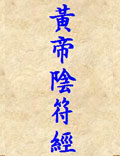 黃帝陰符經